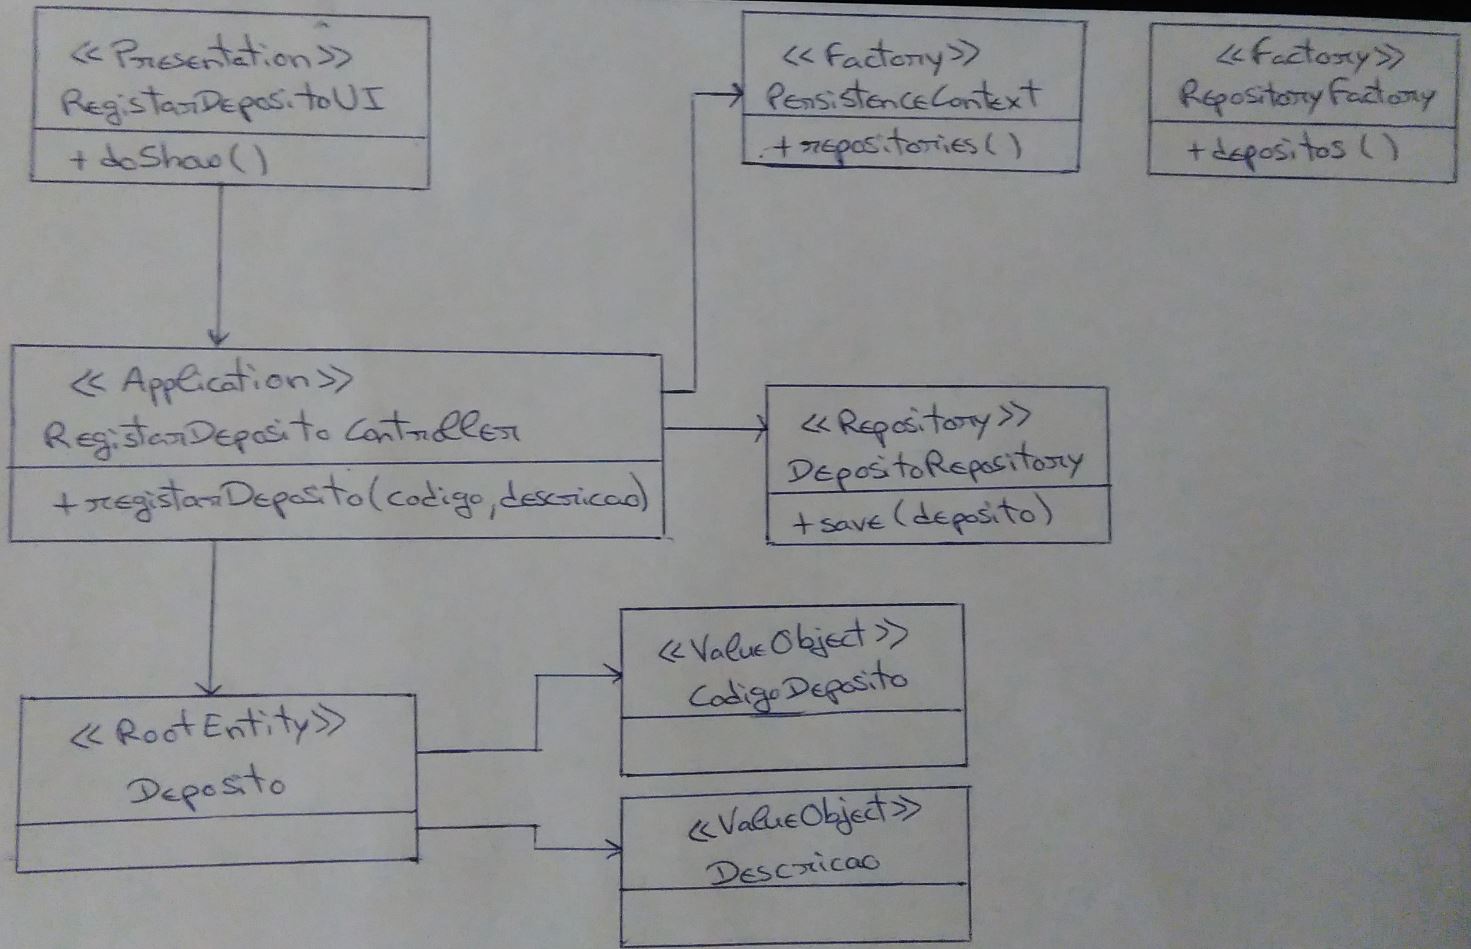 <<Presentation>>
RegistarDepositoUI
+ doShow()
<<Factory>>
PersistenceContext
+repositories()
<<Factory>>
RepositoryFactory
+depositos()
<<Application>>
RegistarDepositoController
+registarDeposito(codigo,descricao)
<<Repository>>
DepositoRepository
+save(deposito)
<<RootEntity>>
Deposito
<<ValueObject>>
CodigoDeposito
<<ValueObject>>
Descricao